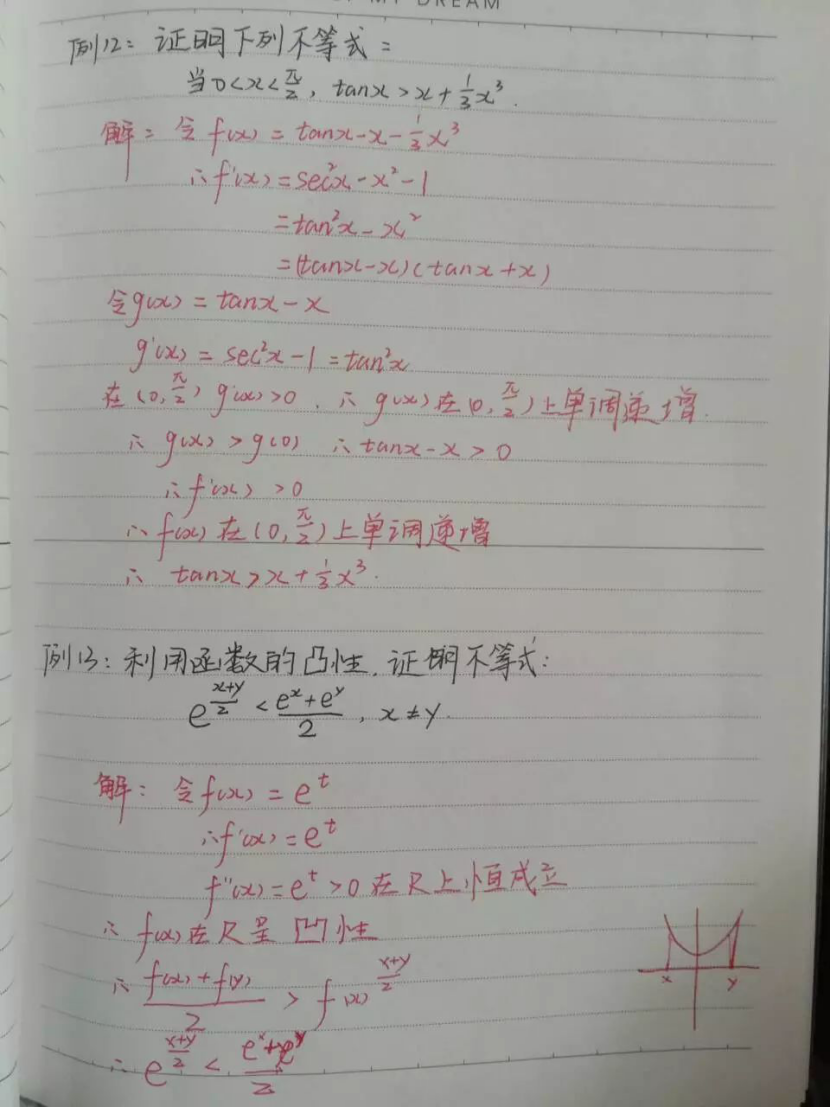 MY DREAM
例12：证明下列不等式：
当0<x<π/2, tanx>x+1/3x³.
解：令f(x)=tanx-x-1/3x³
∴f'(x)=sec²x-x²-1
=tan²x-x²
=(tanx-x)(tanx+x)
令g(x)=tanx-x
g'(x)=sec²x-1=tan²x
在(0,π/2)g'(x)>0.∴g(x)在(0,π/2)上单调递增.
∴g(x)>g(0) ∴tanx-x>0
∴f'(x)>0
∴f(x)在(0,π/2)上单调递增
∴tanx>x+1/3x³.
例13：利用函数的凸性,证明不等式：
e^((x+y)/2)<(e^x+e^y)/2,x≠y.
解：令f(x)=e^t
∴f'(x)=e^t
f''(x)=e^t>0在R上恒成立
∴f(x)在R呈凹性
∴(f(x)+f(y))/2>f(x)^((x+y)/2)
x y
∴e^((x+y)/2)<(e^x+e^y)/2